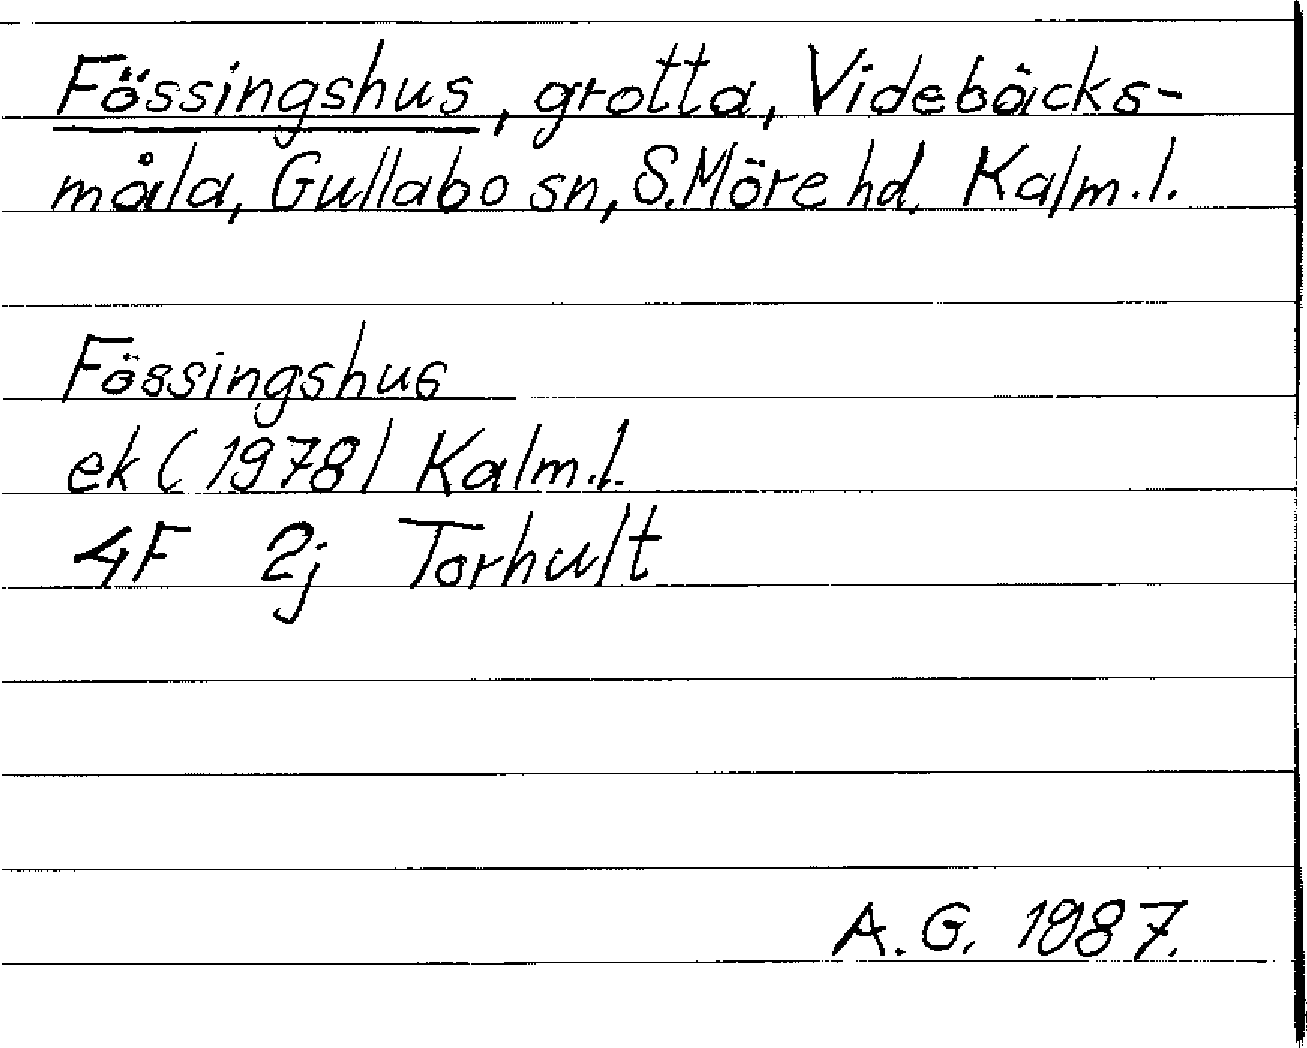 Fössingshus, grotta, Videbäcks-
måla, Gullabo sn, S.Möre hd. Kalm.l.
Fössingshus
ek (1978) Kalm.l.
4F 2j Torhult
A.G. 1987.